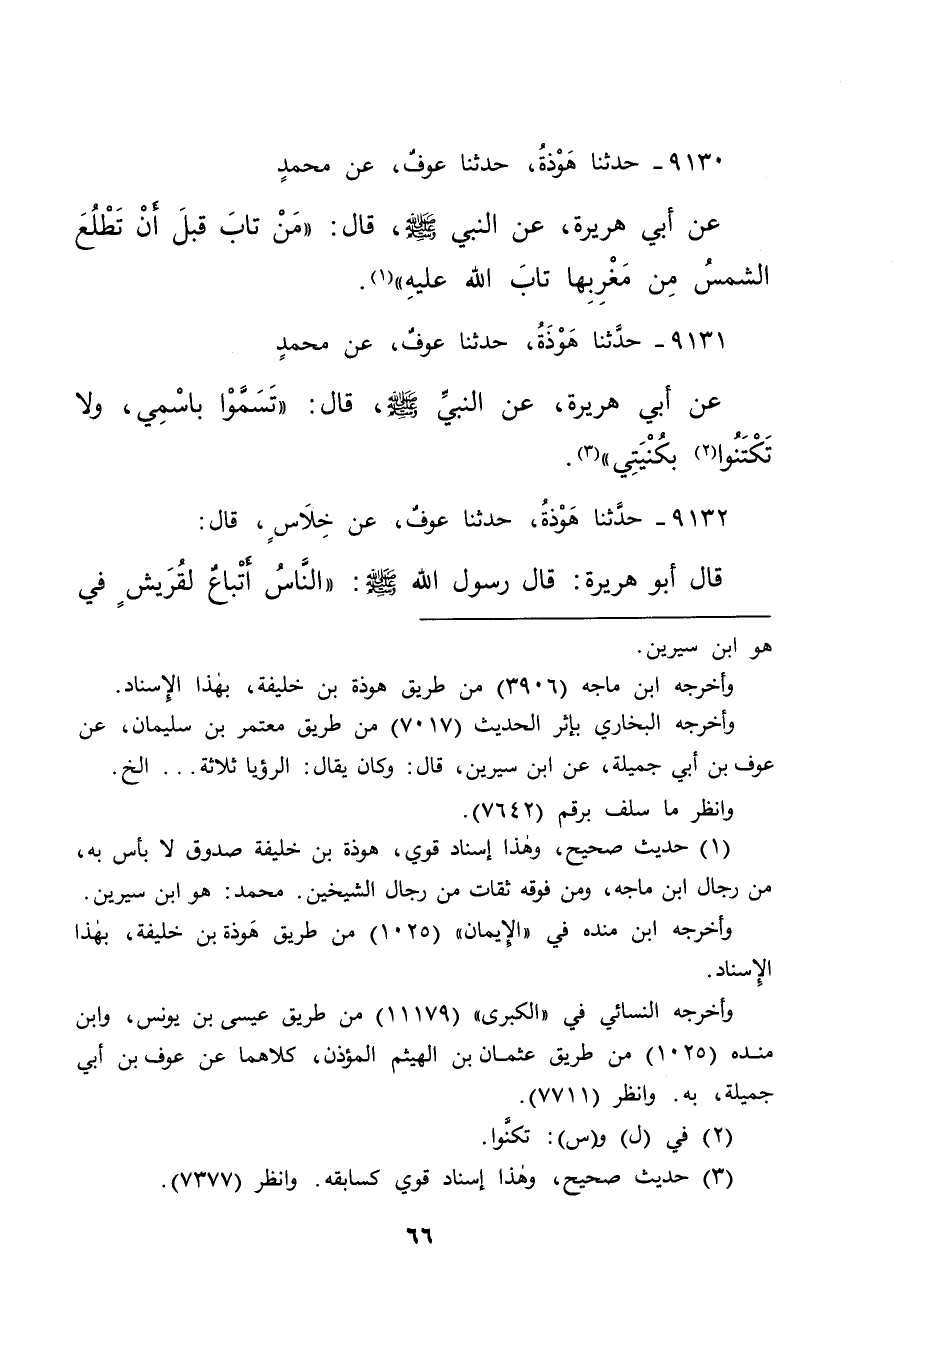 ٩١٣٠ ـ حدثنا هَوْذةُ، حدثنا عوفٌ، عن محمدٍ
عن أبي هريرة، عن النبي ﷺ، قال: «مَنْ تابَ قبلَ أَنْ تَطْلُعَ
الشمسُ مِن مَغْرِبِها تابَ الله عليهِ»(١).
٩١٣١ ـ حدَّثنا هَوْذَةُ، حدثنا عوفٌ، عن محمدٍ
عن أبي هريرة، عن النبيِّ ﷺ، قال: «تَسَمَّوْا باسْمِي، ولا
تَكْتَنُوا(٢) بكُنْيَتِي»(٣).
٩١٣٢ ـ حدَّثنا هَوْذةُ، حدثنا عوفٌ، عن خِلَاسٍ، قال:
قال أبو هريرة: قال رسول الله ﷺ: «النَّاسُ أَتْباعٌ لقُرَيشٍ في
هو ابن سيرين.
وأخرجه ابن ماجه (٣٩٠٦) من طريق هوذة بن خليفة، بهٰذا الإِسناد.
وأخرجه البخاري بإثر الحديث (٧٠١٧) من طريق معتمر بن سليمان، عن
عوف بن أبي جميلة، عن ابن سيرين، قال: وكان يقال: الرؤيا ثلاثة... الخ.
وانظر ما سلف برقم (٧٦٤٢).
(١) حديث صحيح، وهٰذا إسناد قوي، هوذة بن خليفة صدوق لا بأس به،
من رجال ابن ماجه، ومن فوقه ثقات من رجال الشيخين. محمد: هو ابن سيرين.
وأخرجه ابن منده في «الإِيمان» (١٠٢٥) من طريق هَوذة بن خليفة، بهٰذا
الإِسناد.
وأخرجه النسائي في «الكبرى» (١١١٧٩) من طريق عيسى بن يونس، وابن
منده (١٠٢٥) من طريق عثمان بن الهيثم المؤذن، كلاهما عن عوف بن أبي
جميلة، به. وانظر (٧٧١١).
(٢) في (ل) و(س): تكنَّوا.
(٣) حديث صحيح، وهٰذا إسناد قوي كسابقه. وانظر (٧٣٧٧).
٦٦